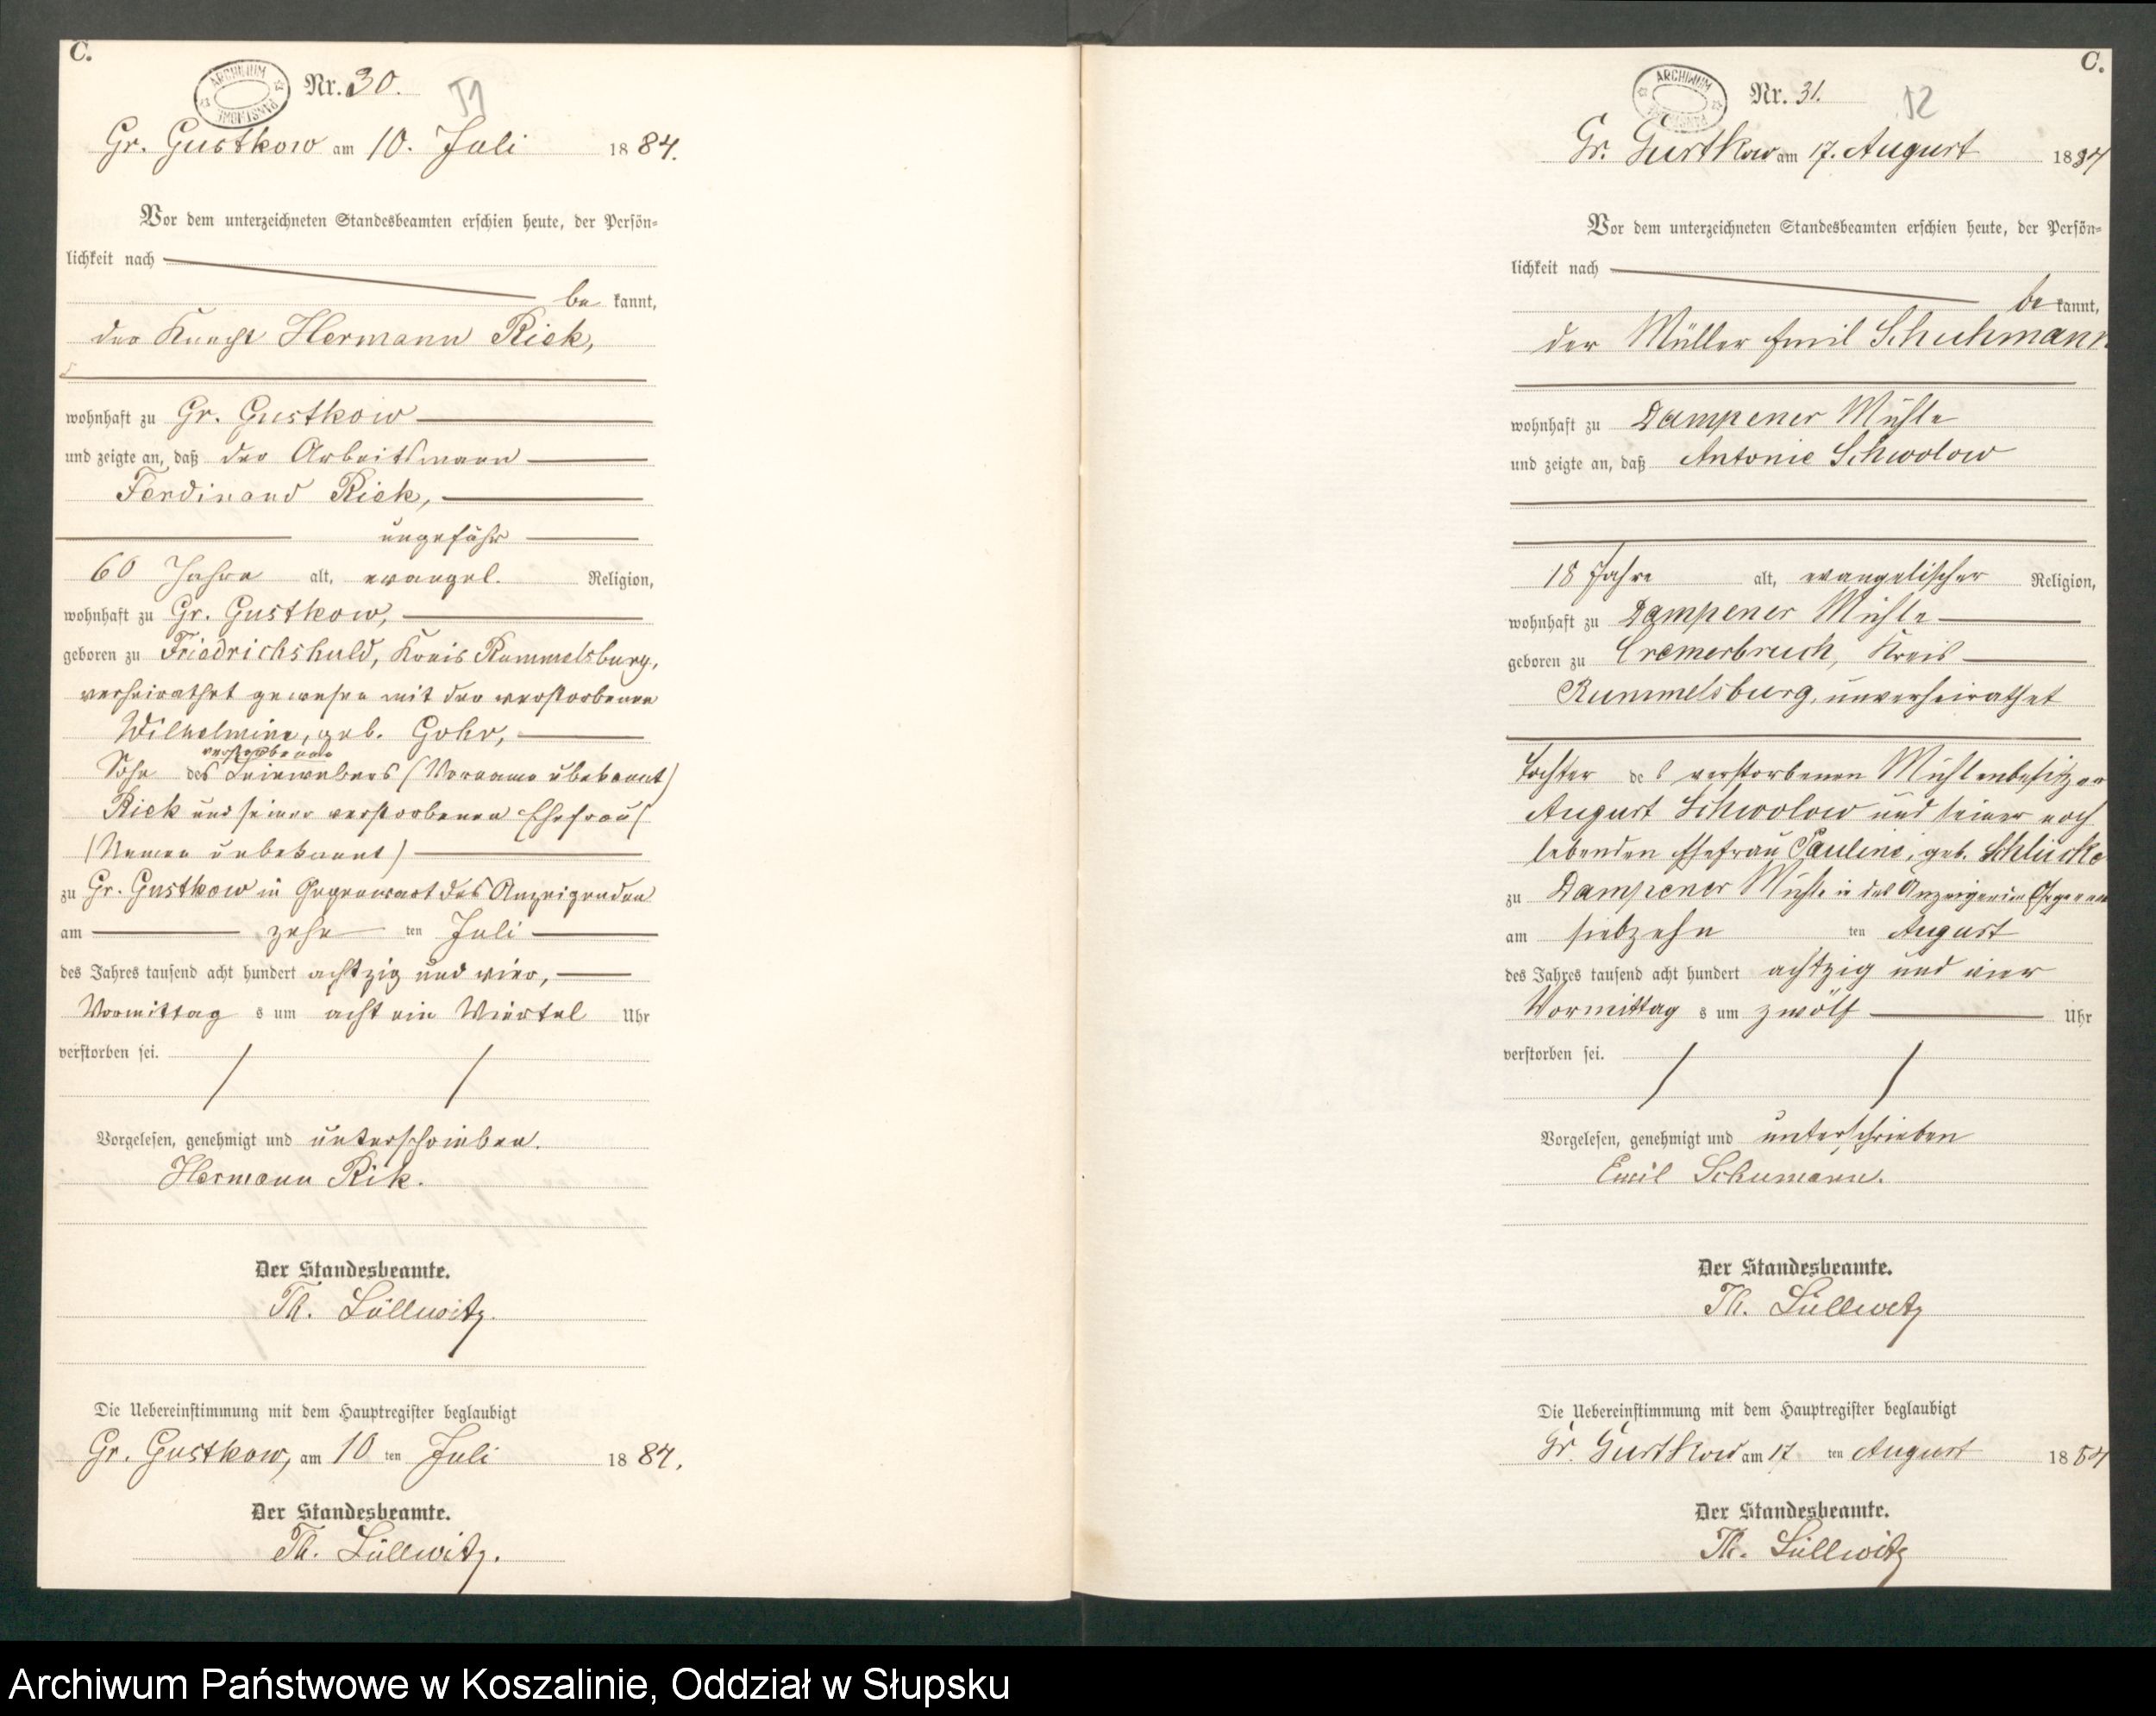 C.
ARCHIWUM PAŃSTWOWE
Nr. 30.
Gr. Gustkow am 10. Juli 1884.
Vor dem unterzeichneten Standesbeamten erschien heute, der Persön-
lichkeit nach
be kannt,
der Knecht Hermann Riek,
wohnhaft zu Gr. Gustkow
und zeigte an, daß der Arbeitsmann
Ferdinand Riek,
ungefähr
60 Jahre alt, evangel. Religion,
wohnhaft zu Gr. Gustkow,
geboren zu Friedrichshuld, Kreis Rummelsburg,
verheirathet gewesen mit der verstorbenen
Wilhelmine, geb. Gohr,
verstorbenen
Sohn des Leinewebers (Vorname ubekannt)
Riek und seiner verstorbenen Ehefrau
(Namen unbekannt)
zu Gr. Gustkow in Gegenwart des Anzeigenden
am zehn ten Juli
des Jahres tausend acht hundert achtzig und vier,
Vormittag s um acht ein Viertel Uhr
verstorben sei.
Vorgelesen, genehmigt und unterschrieben.
Hermann Rik.
Der Standesbeamte.
Th. Lüllwitz.
Die Uebereinstimmung mit dem Hauptregister beglaubigt
Gr. Gustkow, am 10 ten Juli 1884.
Der Standesbeamte.
Th. Lüllwitz.
C.
ARCHIWUM PAŃSTWOWE
Nr. 31.
52
Gr. Gustkow am 17. August 1884
Vor dem unterzeichneten Standesbeamten erschien heute, der Persön-
lichkeit nach
be kannt,
der Müller Emil Schuhmann
wohnhaft zu Dampener Mühle
und zeigte an, daß Antonie Schwolow
18 Jahre alt, evangelischer Religion,
wohnhaft zu Dampener Mühle
geboren zu Cremerbruch, Kreis
Rummelsburg, unverheirathet
Tochter des verstorbenen Mühlenbesitzer
August Schwolow und seiner noch
lebenden Ehefrau Pauline, geb. Schlücke
zu Dampener Mühle in des Anzeigenden
am siebzehn ten August
des Jahres tausend acht hundert achtzig und vier
Vormittag s um zwölf Uhr
verstorben sei.
Vorgelesen, genehmigt und unterschrieben
Emil Schumann.
Der Standesbeamte.
Th. Lüllwitz
Die Uebereinstimmung mit dem Hauptregister beglaubigt
Gr. Gustkow am 17 ten August 1884
Der Standesbeamte.
Th. Lüllwitz
Archiwum Państwowe w Koszalinie, Oddział w Słupsku